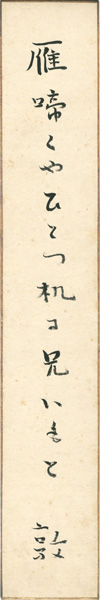 雁啼くやひとつ机に兄いもと
敦